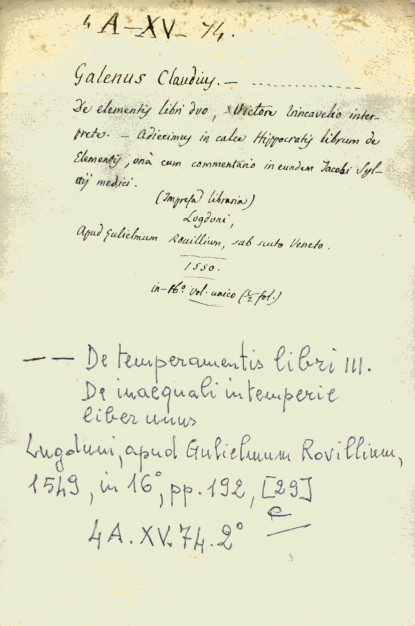 4 A-XV- 74.
Galenus Claudius. —
De elementis libri duo, Victore Trincavelio inter-
prete. — Adiecimus in calce Hippocratis librum de
Elementis, unà cum commentario in eundem Jacobi Syl-
vij medici.
(Impresa libraria)
Lugduni,
Apud Gulielmum Rouillium, sub scuto Veneto.
1550.
in-16º vol. unico (½ fol.)
—— De temperamentis libri III.
De inaequali intemperie
liber unus
Lugduni, apud Gulielmum Rovillium,
1549, in 16º, pp. 192, [29]
4 A. XV. 74. 2º